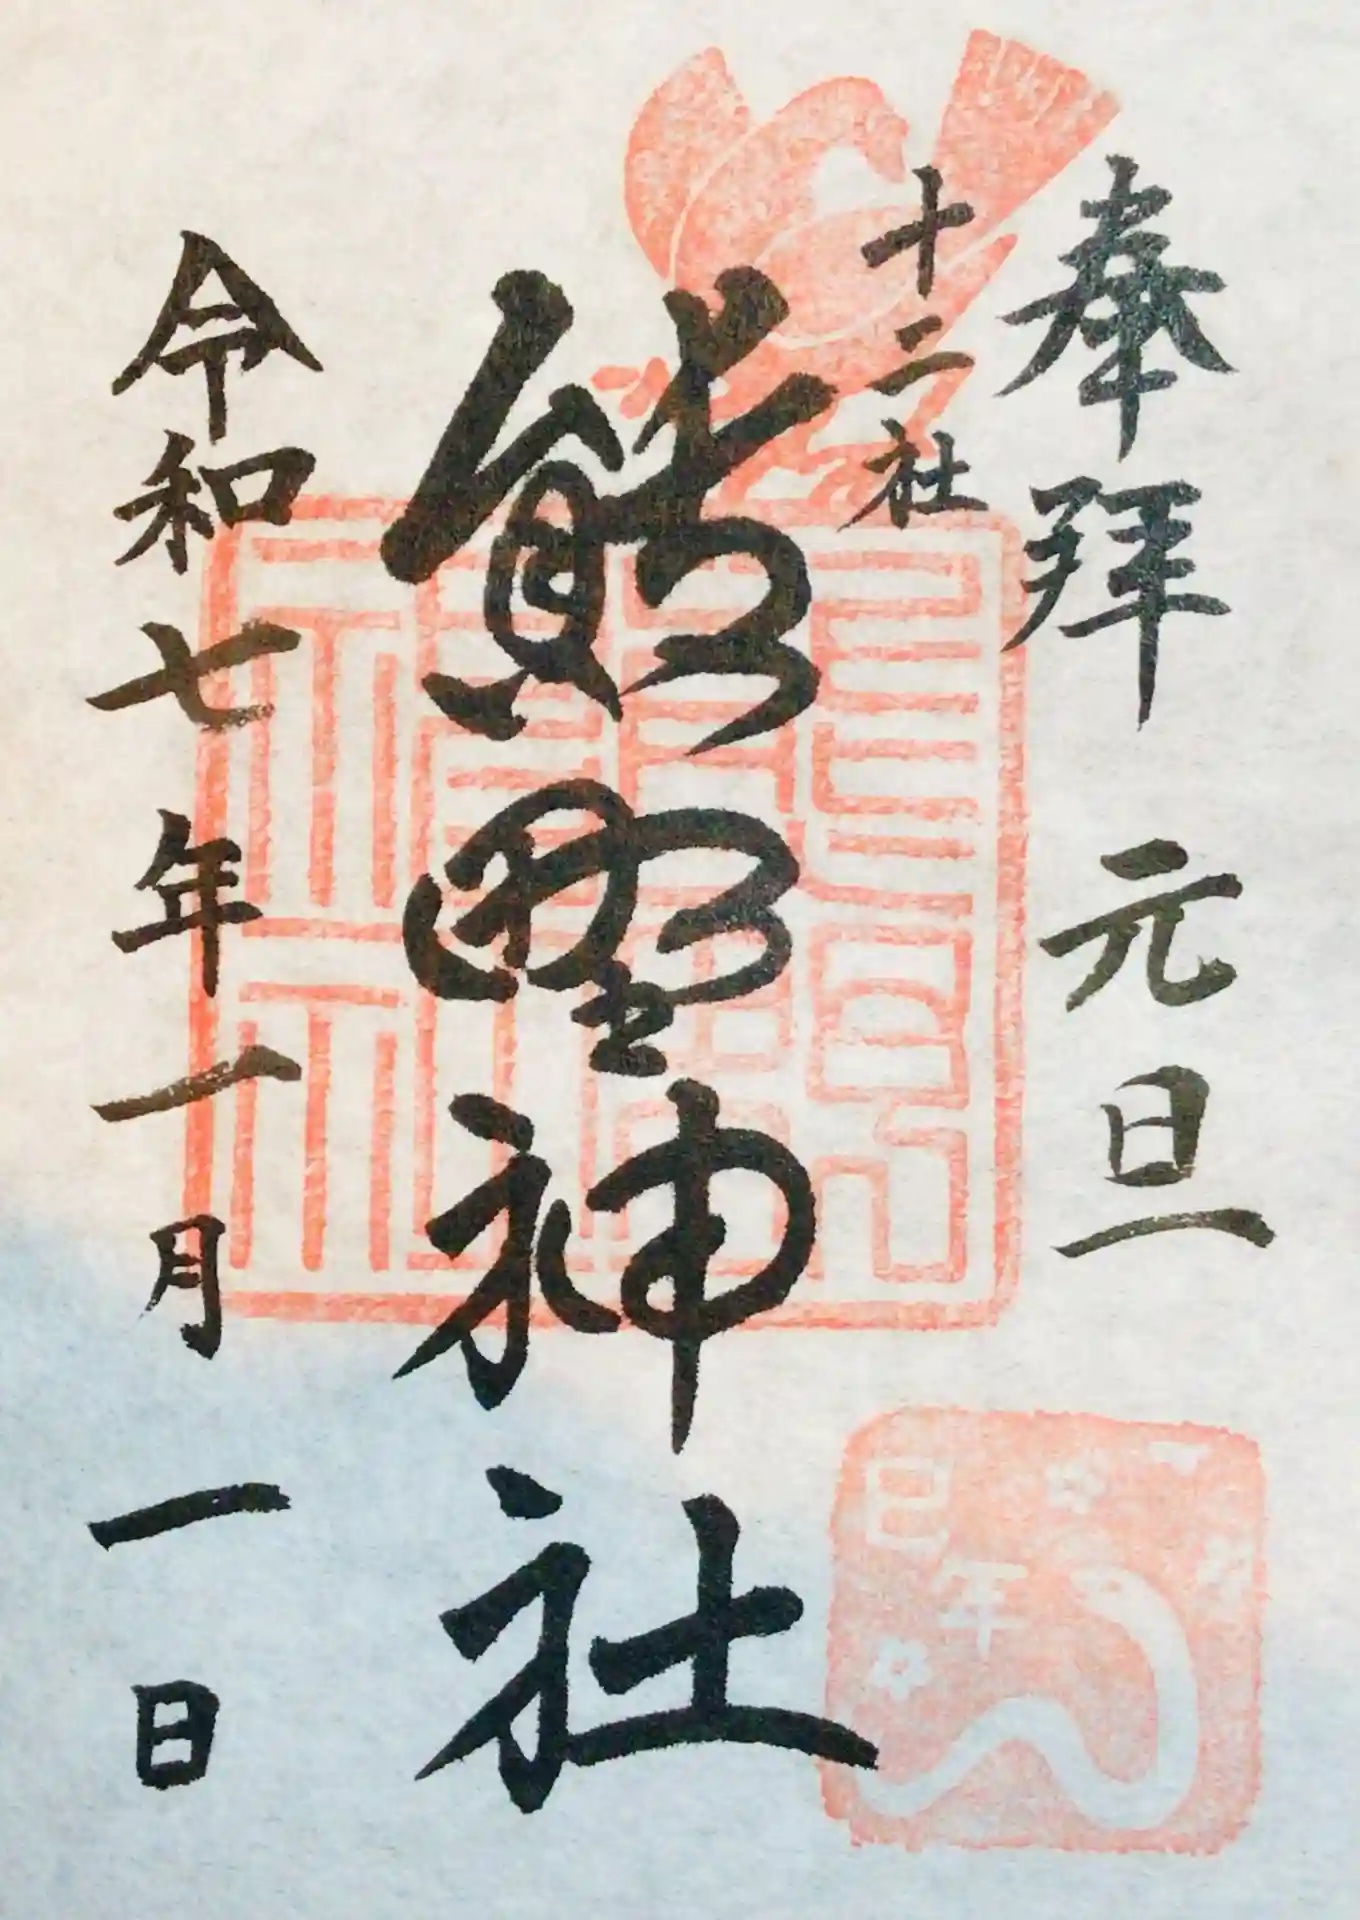 奉拝 元旦
十二社
熊野神社
令和七年一月一日
巳年